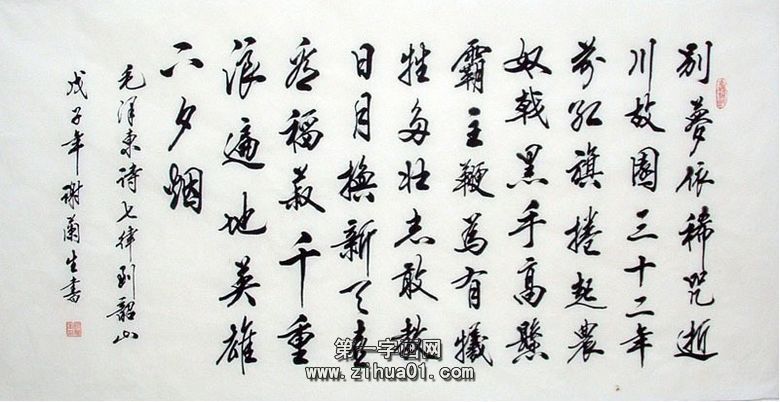 别夢依稀咒逝
川故園三十二年
前红旗捲起農
奴戟黑手高懸
霸主鞭為有犧
牲多壮志敢教
日月換新天喜
看稻菽千重
浪遍地英雄
下夕烟
毛泽東诗七律到韶山
戊子年谢蘭生書
第一字画网
www.zihua01.com